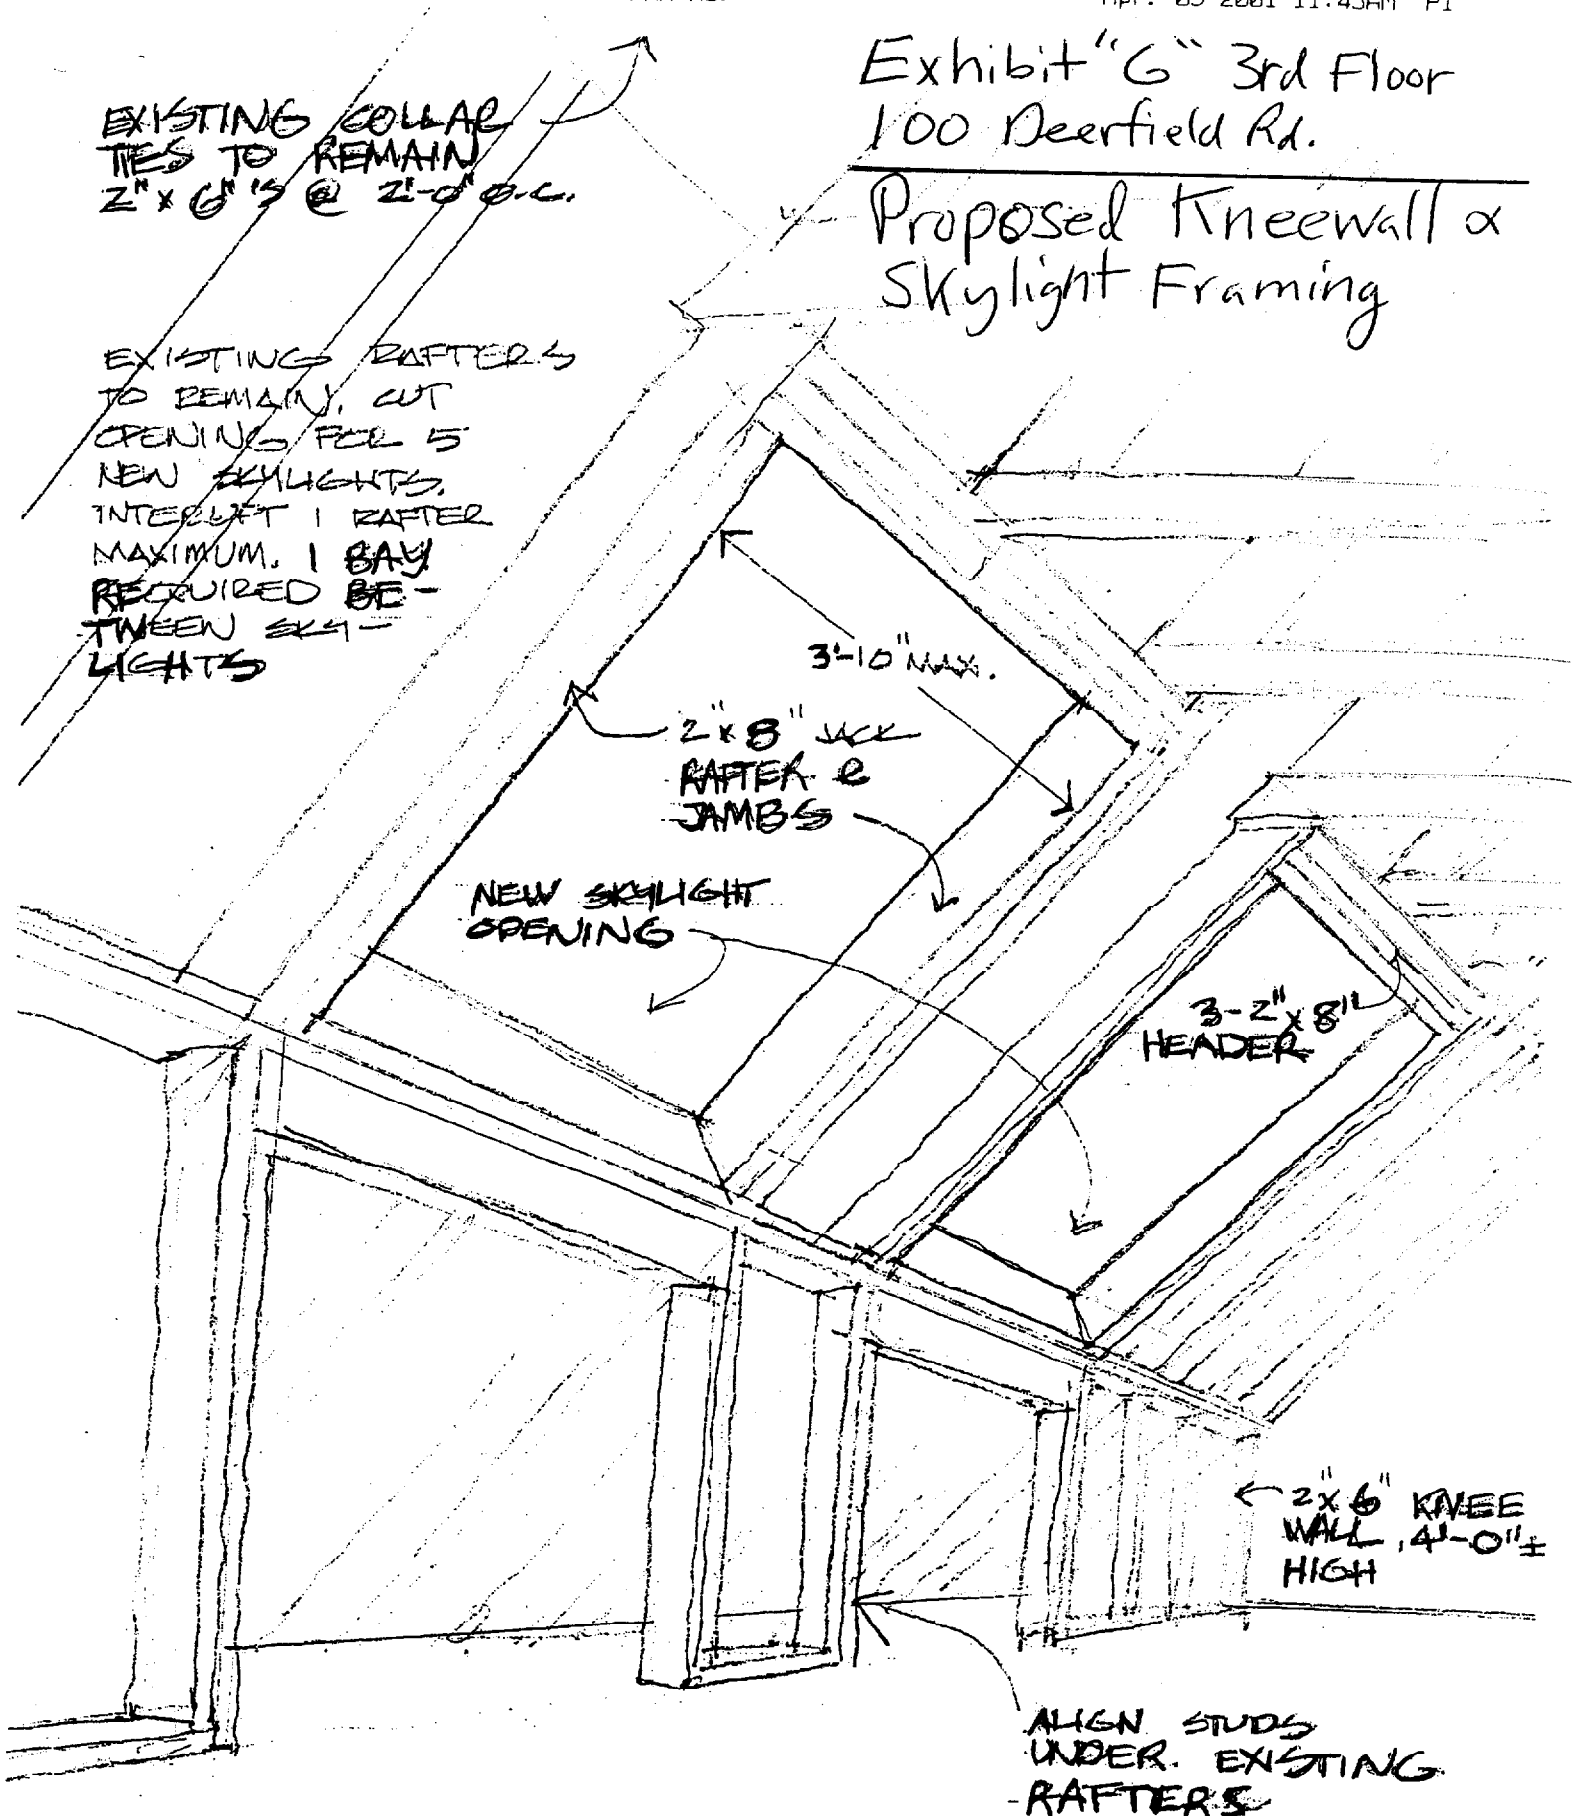 Apr. 05 2001 11:45AM P1
Exhibit "G" 3rd Floor
100 Deerfield Rd.
Proposed Kneewall &
Skylight Framing
EXISTING COLLAR
TIES TO REMAIN
2" x 6"'s @ 2'-0" O.C.
EXISTING RAFTERS
TO REMAIN. CUT
OPENING FOR 5
NEW SKYLIGHTS.
INTERUPT 1 RAFTER
MAXIMUM. 1 BAY
REQUIRED BE-
TWEEN SKY-
LIGHTS
3'-10" MAX.
2"x8" JACK
RAFTER @
JAMBS
NEW SKYLIGHT
OPENING
3-2"x8"
HEADER
2"x6" KNEE
WALL, 4'-0"±
HIGH
ALIGN STUDS
UNDER EXISTING
RAFTERS